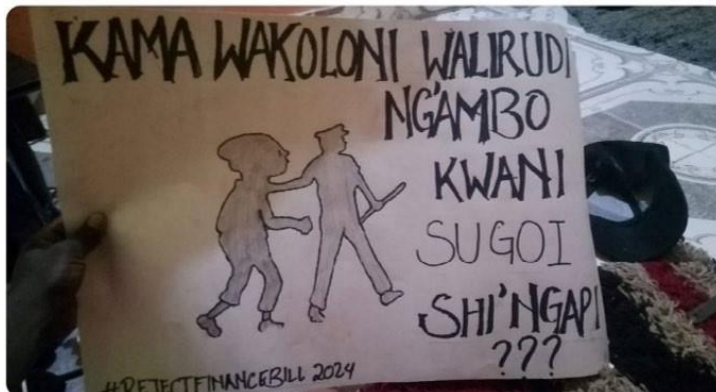 KAMA WAKOLONI WALIRUDI
NG'AMBO
KWANI
SUGOI
SHI'NGAPI
???
#REJECTFINANCEBILL 2024